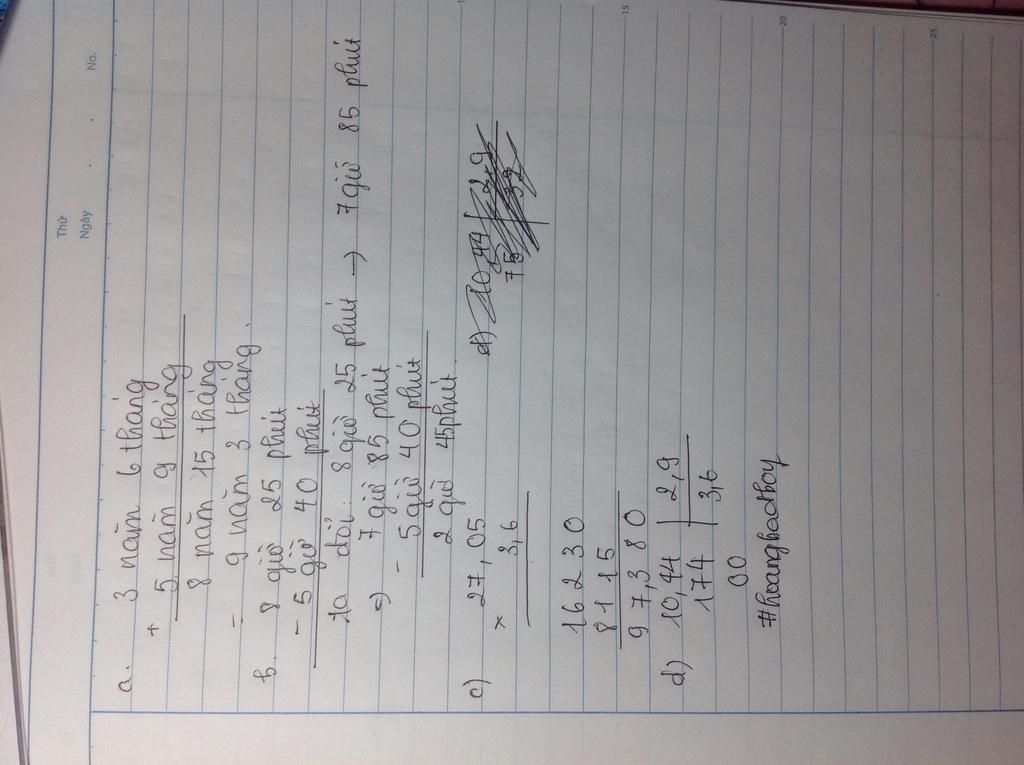 Thứ
Ngày
No.
a. 3 năm 6 tháng
+ 5 năm 9 tháng
8 năm 15 tháng
= 9 năm 3 tháng.
b. 8 giờ 25 phút
- 5 giờ 40 phút
Ta đổi: 8 giờ 25 phút → 7 giờ 85 phút
=) 7 giờ 85 phút
- 5 giờ 40 phút
2 giờ 45 phút.
c) 27,05
x 3,6
16230
8115
97,380
d) 10,44 | 2,9
174 | 3,6
00
#hoangbadboy
15
20
25